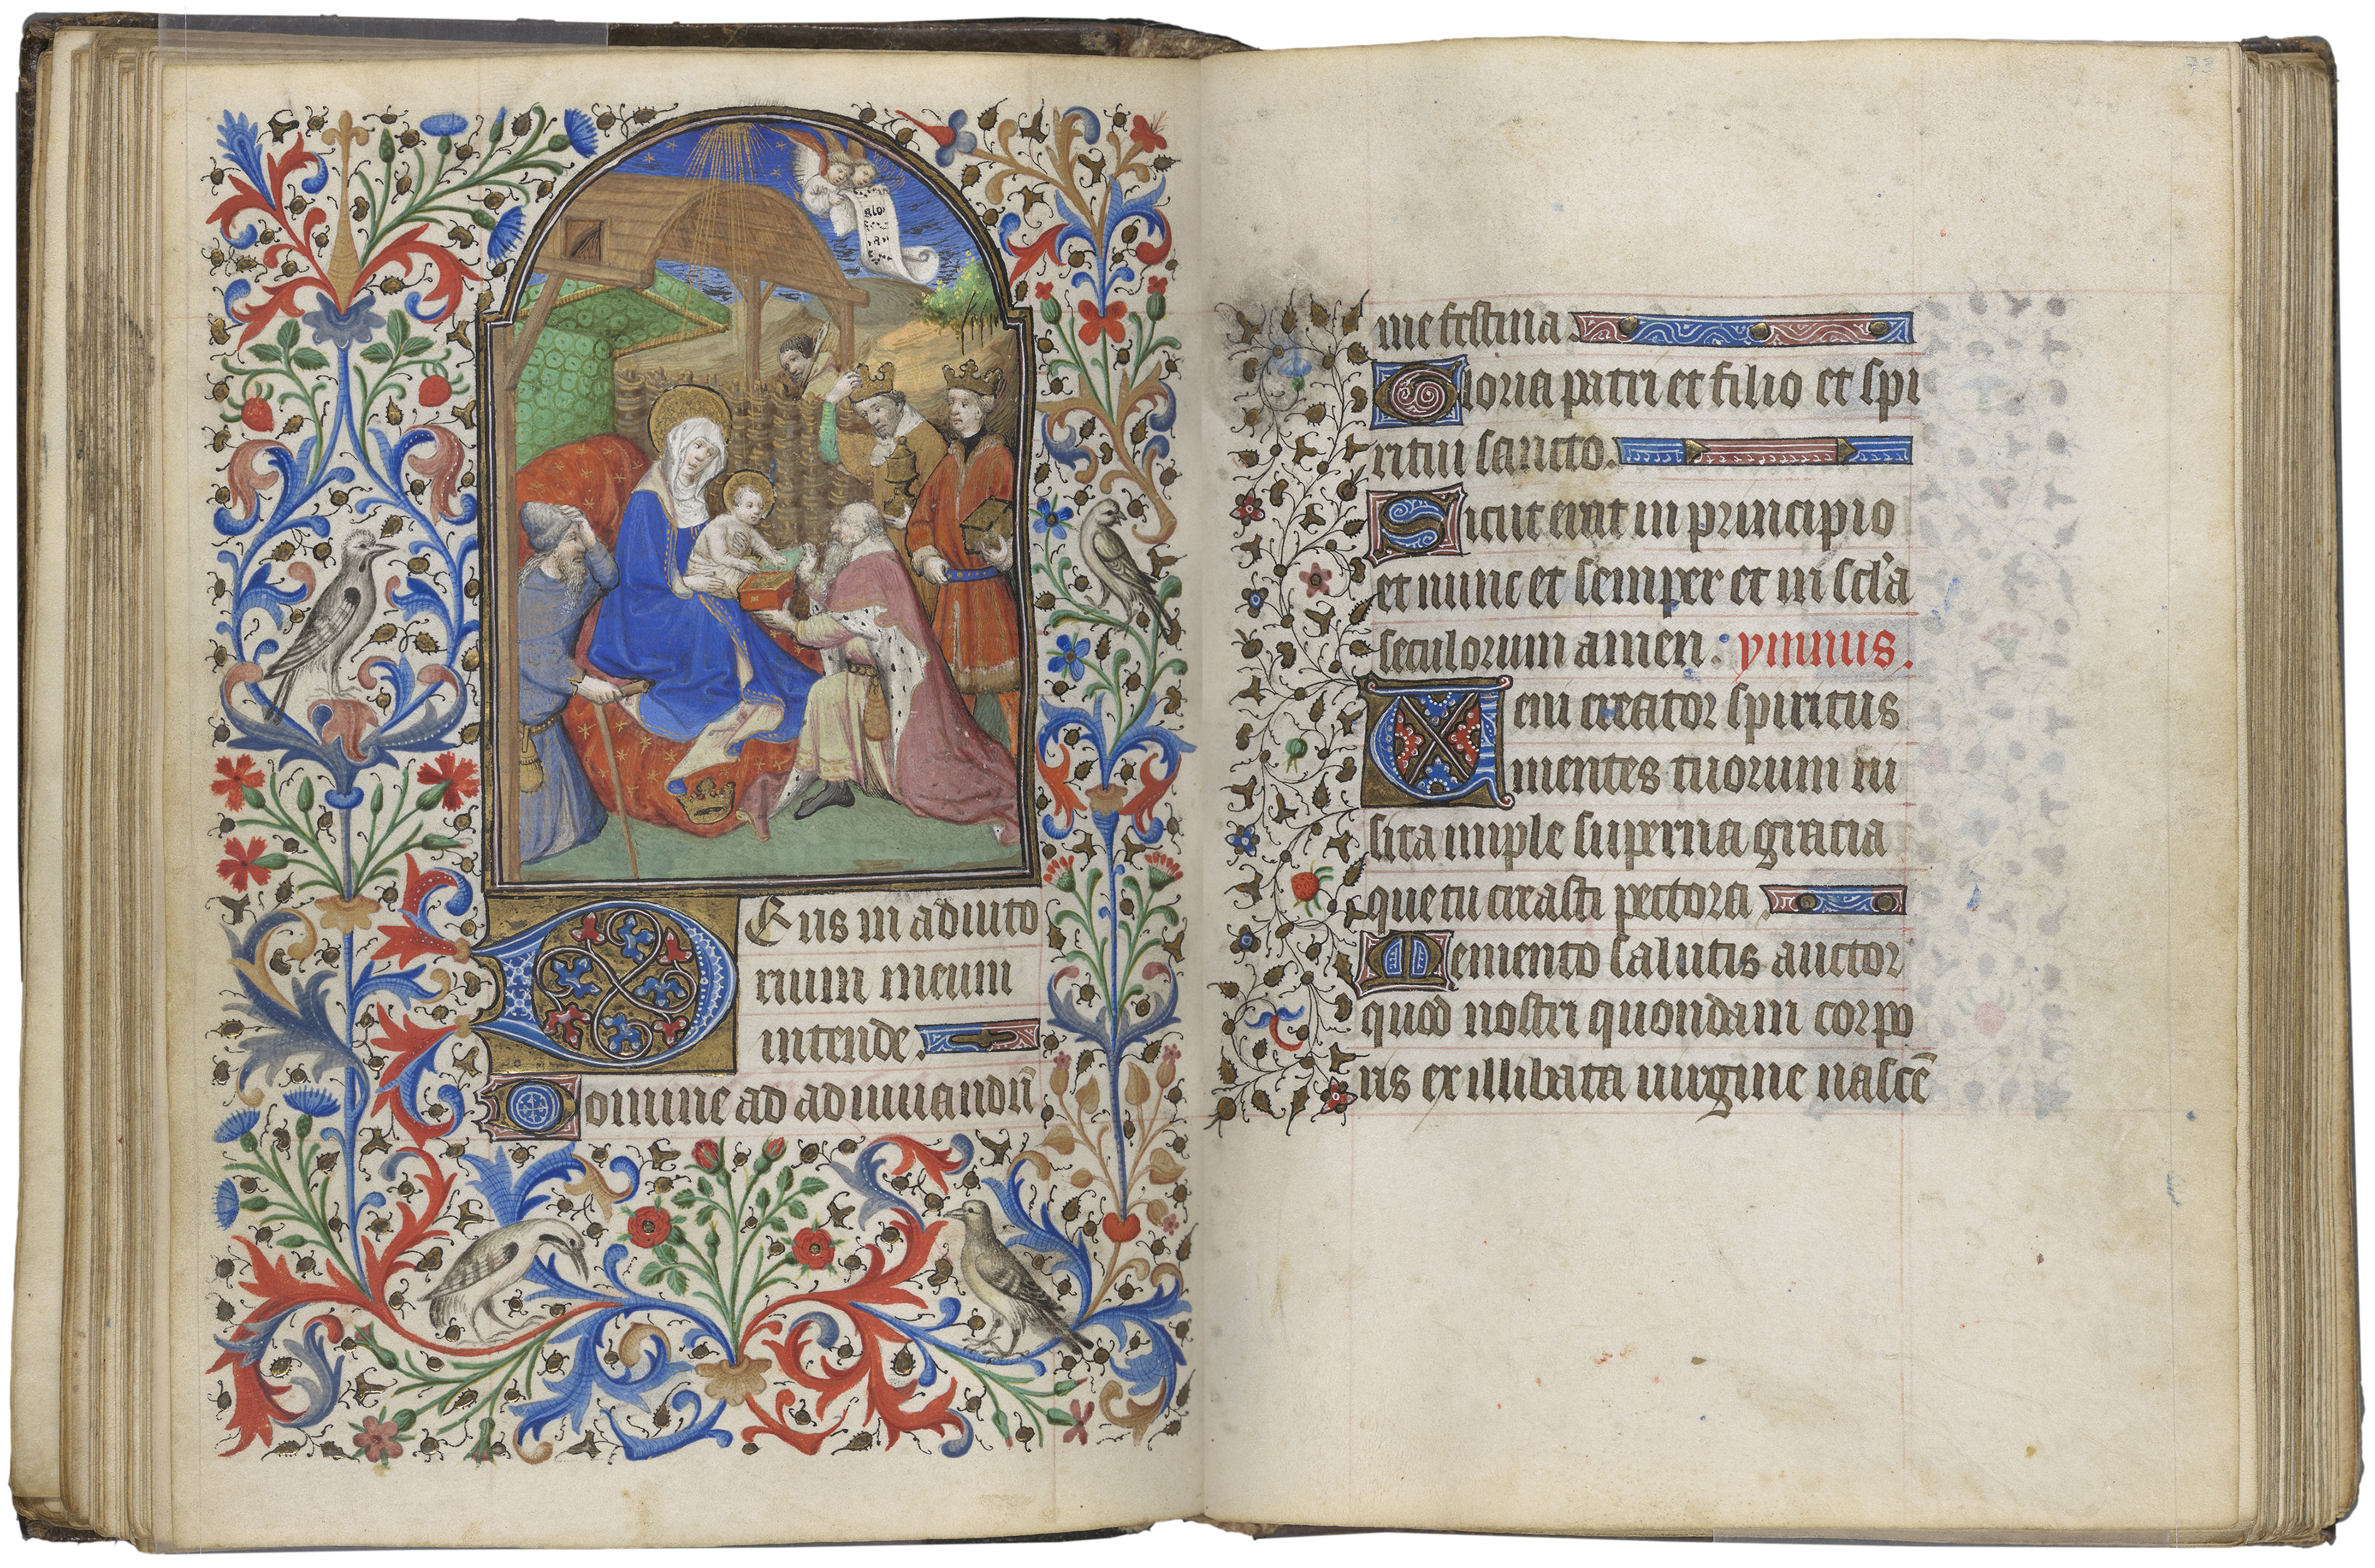 glo
Eus in adiuto
rium meum
intende.
Domine ad adiuuandũ
me festina.
Gloria patri et filio et spi
ritui sancto.
Sicut erat in principio
et nunc et semper et in scl'a
seculorum amen. ymnus.
Veni creator spiritus
mentes tuorum ui
sita imple superna gracia
que tu creasti pectora
Memento salutis auctor
quod nostri quondam corpo
ris ex illibata uirgine nascẽ